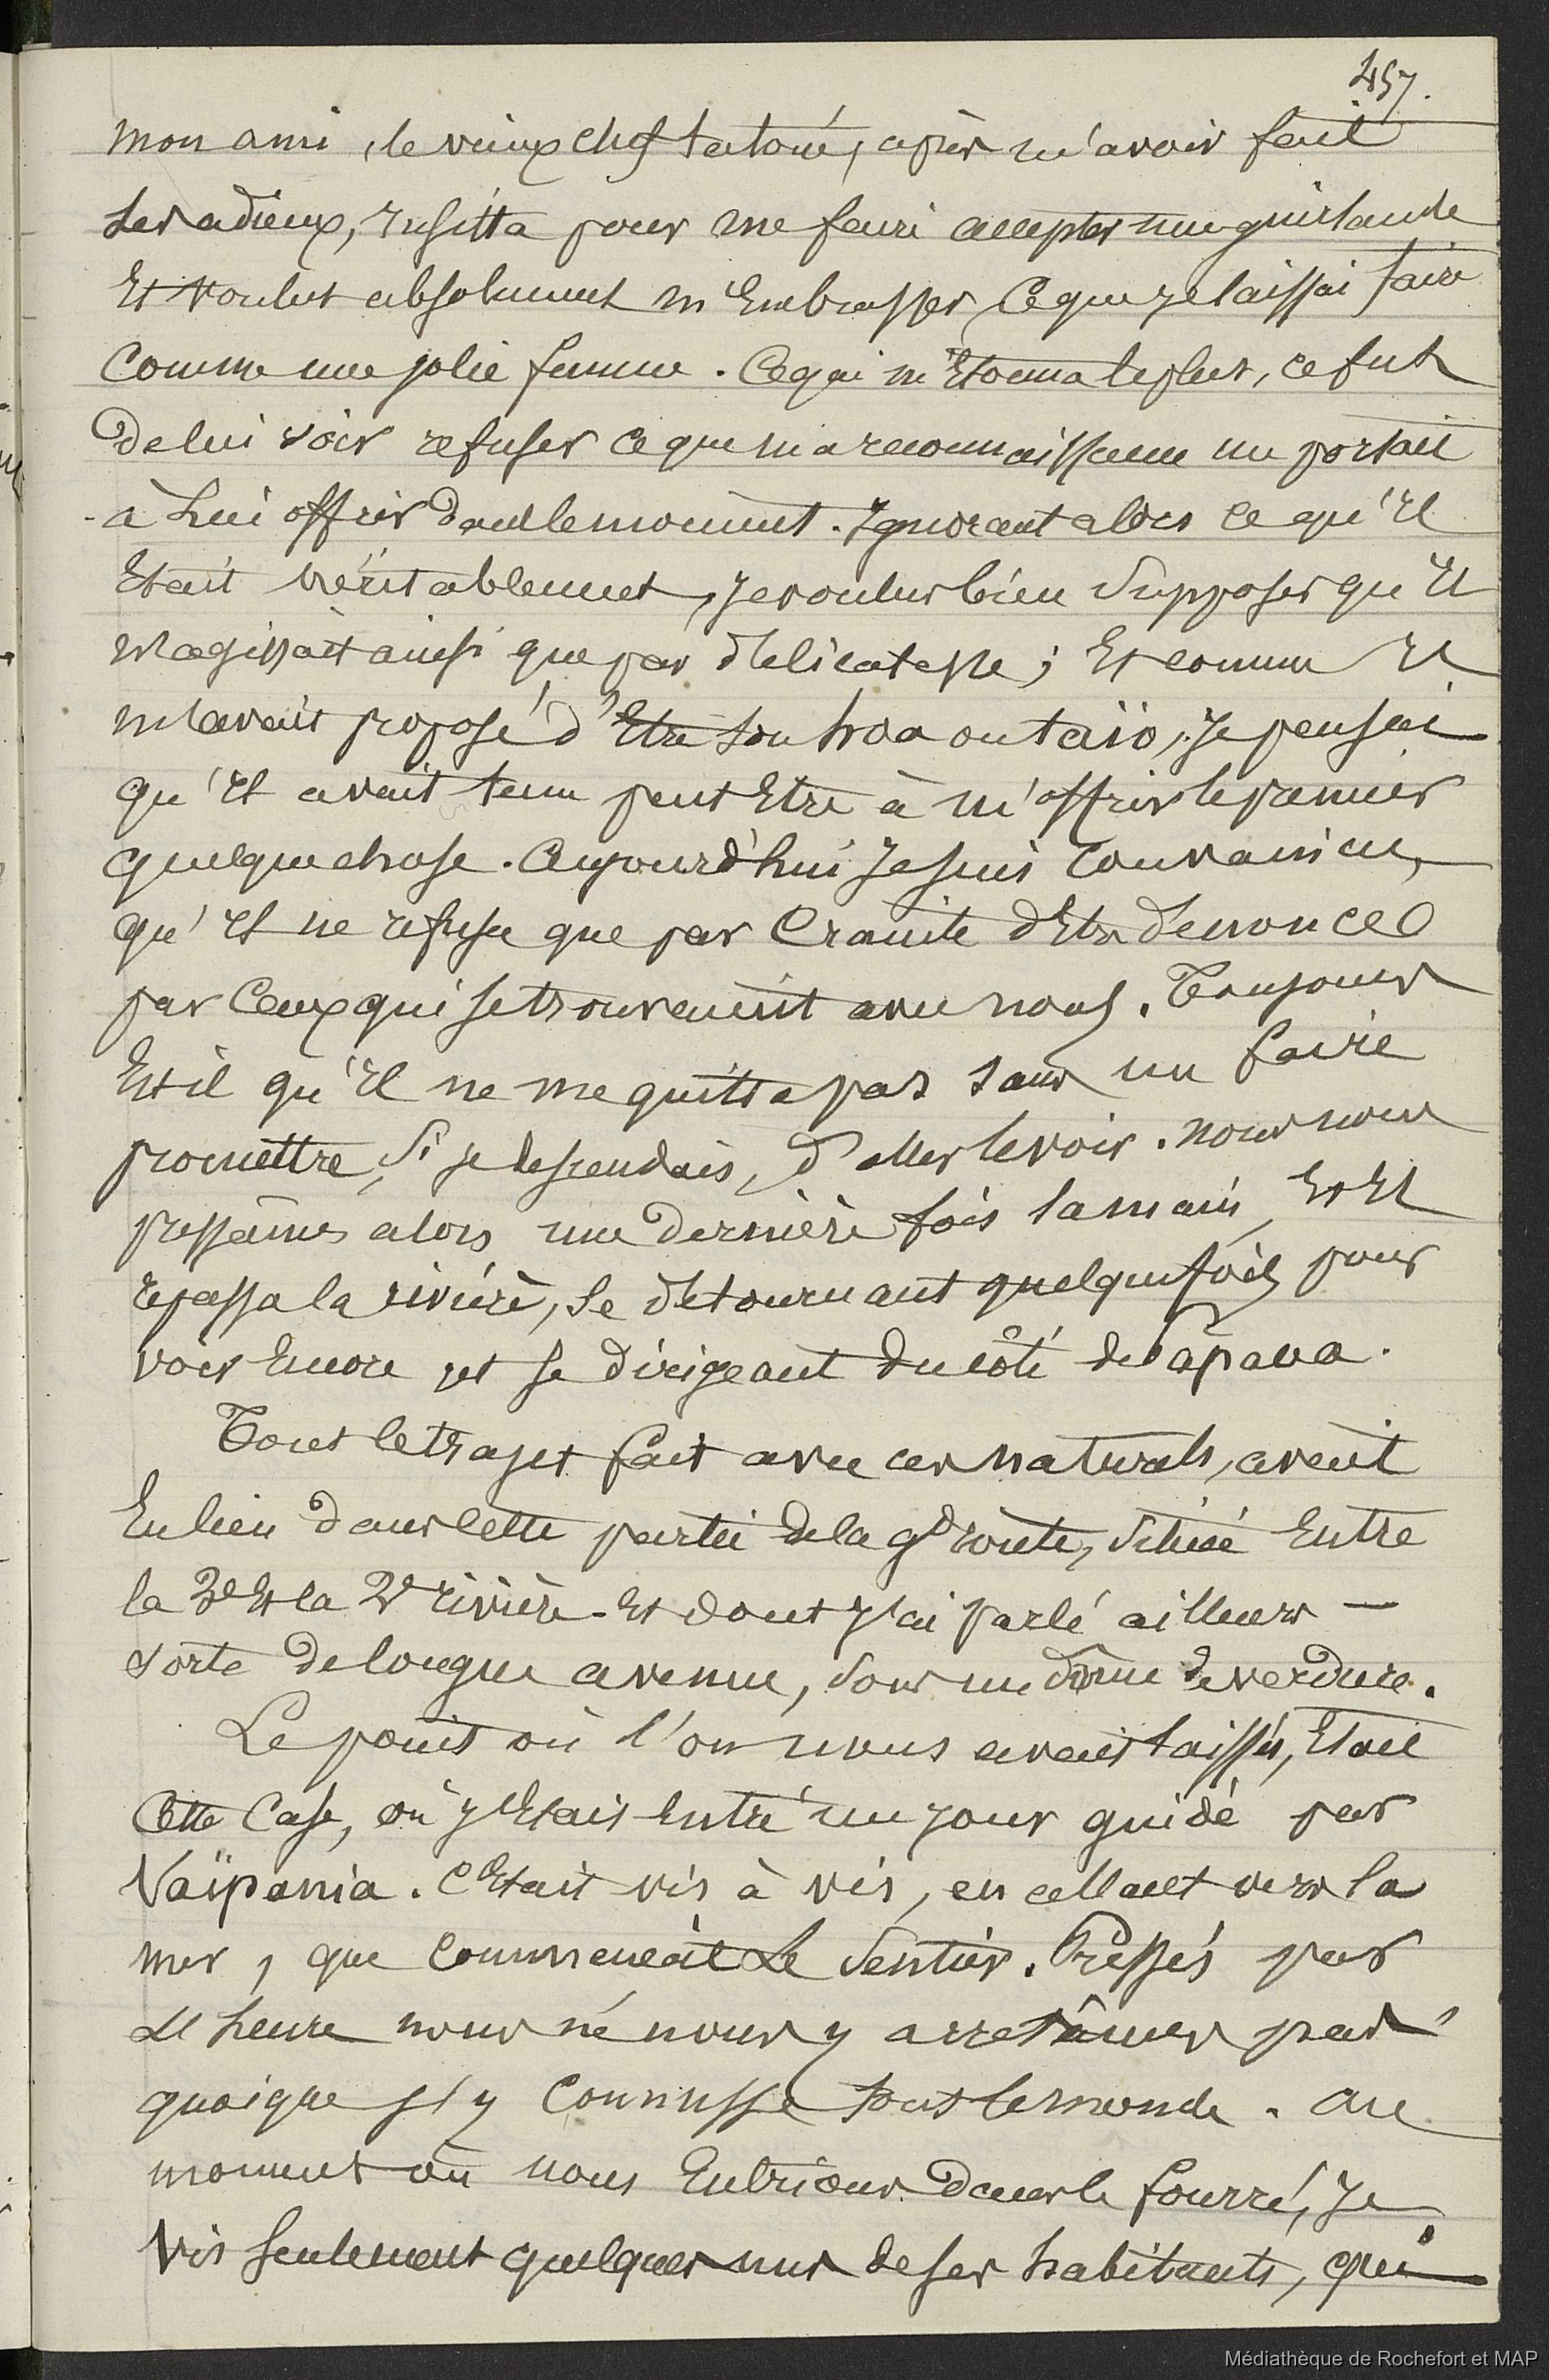 457.
mon ami, le vieux chef tatoué, après m'avoir fait
ses adieux, insista pour me faire accepter une guirlande
Et voulut absolument m'Embrasser, Ce que je laissai faire
Comme une jolie femme. Ce qui m'Etonna le plus, ce fut
de lui voir refuser ce que ma reconnaissance me portait
à lui offrir dans le moment. Ignorant alors ce qu'il
Etait véritablement, je voulus bien supposer qu'il
n'agissait ainsi que par délicatesse; Et comme il
m'avait proposé d'Etre son hoa ou taïo, je pensai
qu'il avait tenu peut Etre à m'offrir le premier
quelque chose. Aujourd'hui je suis Convaincu,
qu'il ne refusa que par Crainte d'Etre dénoncé
par Ceux qui se trouvaient avec nous. Toujours
Est il qu'il ne me quitta pas sans me faire
promettre, si je descendais, d'aller le voir. nous nous
pressâmes alors une dernière fois la main, Et il
repassa la rivière, se détournant quelquefois pour
voir Encore et se dirigeant du côté de Papaoa.
Tout le trajet fait avec ces naturels, avait
Eu lieu dans cette partie de la gde route, située Entre
la 3e Et la 2e rivière. Et dont j'ai parlé ailleurs —
sorte de longue avenue, sous un dôme de verdure.
Le point où l'on nous avait laissés, Etait
Cette Case, où j'Etais Entré un jour guidé par
Vaïpania. C'Etait vis à vis, en allant vers la
mer, que Commencait Le Sentier. Pressés par
L'heure nous ne nous y arretâmes pas
quoique j'y Connusse tout le monde. au
moment où nous Entrions dans le fourré, je
Vis seulement quelques uns de ses habitants, qui
Médiathèque de Rochefort et MAP